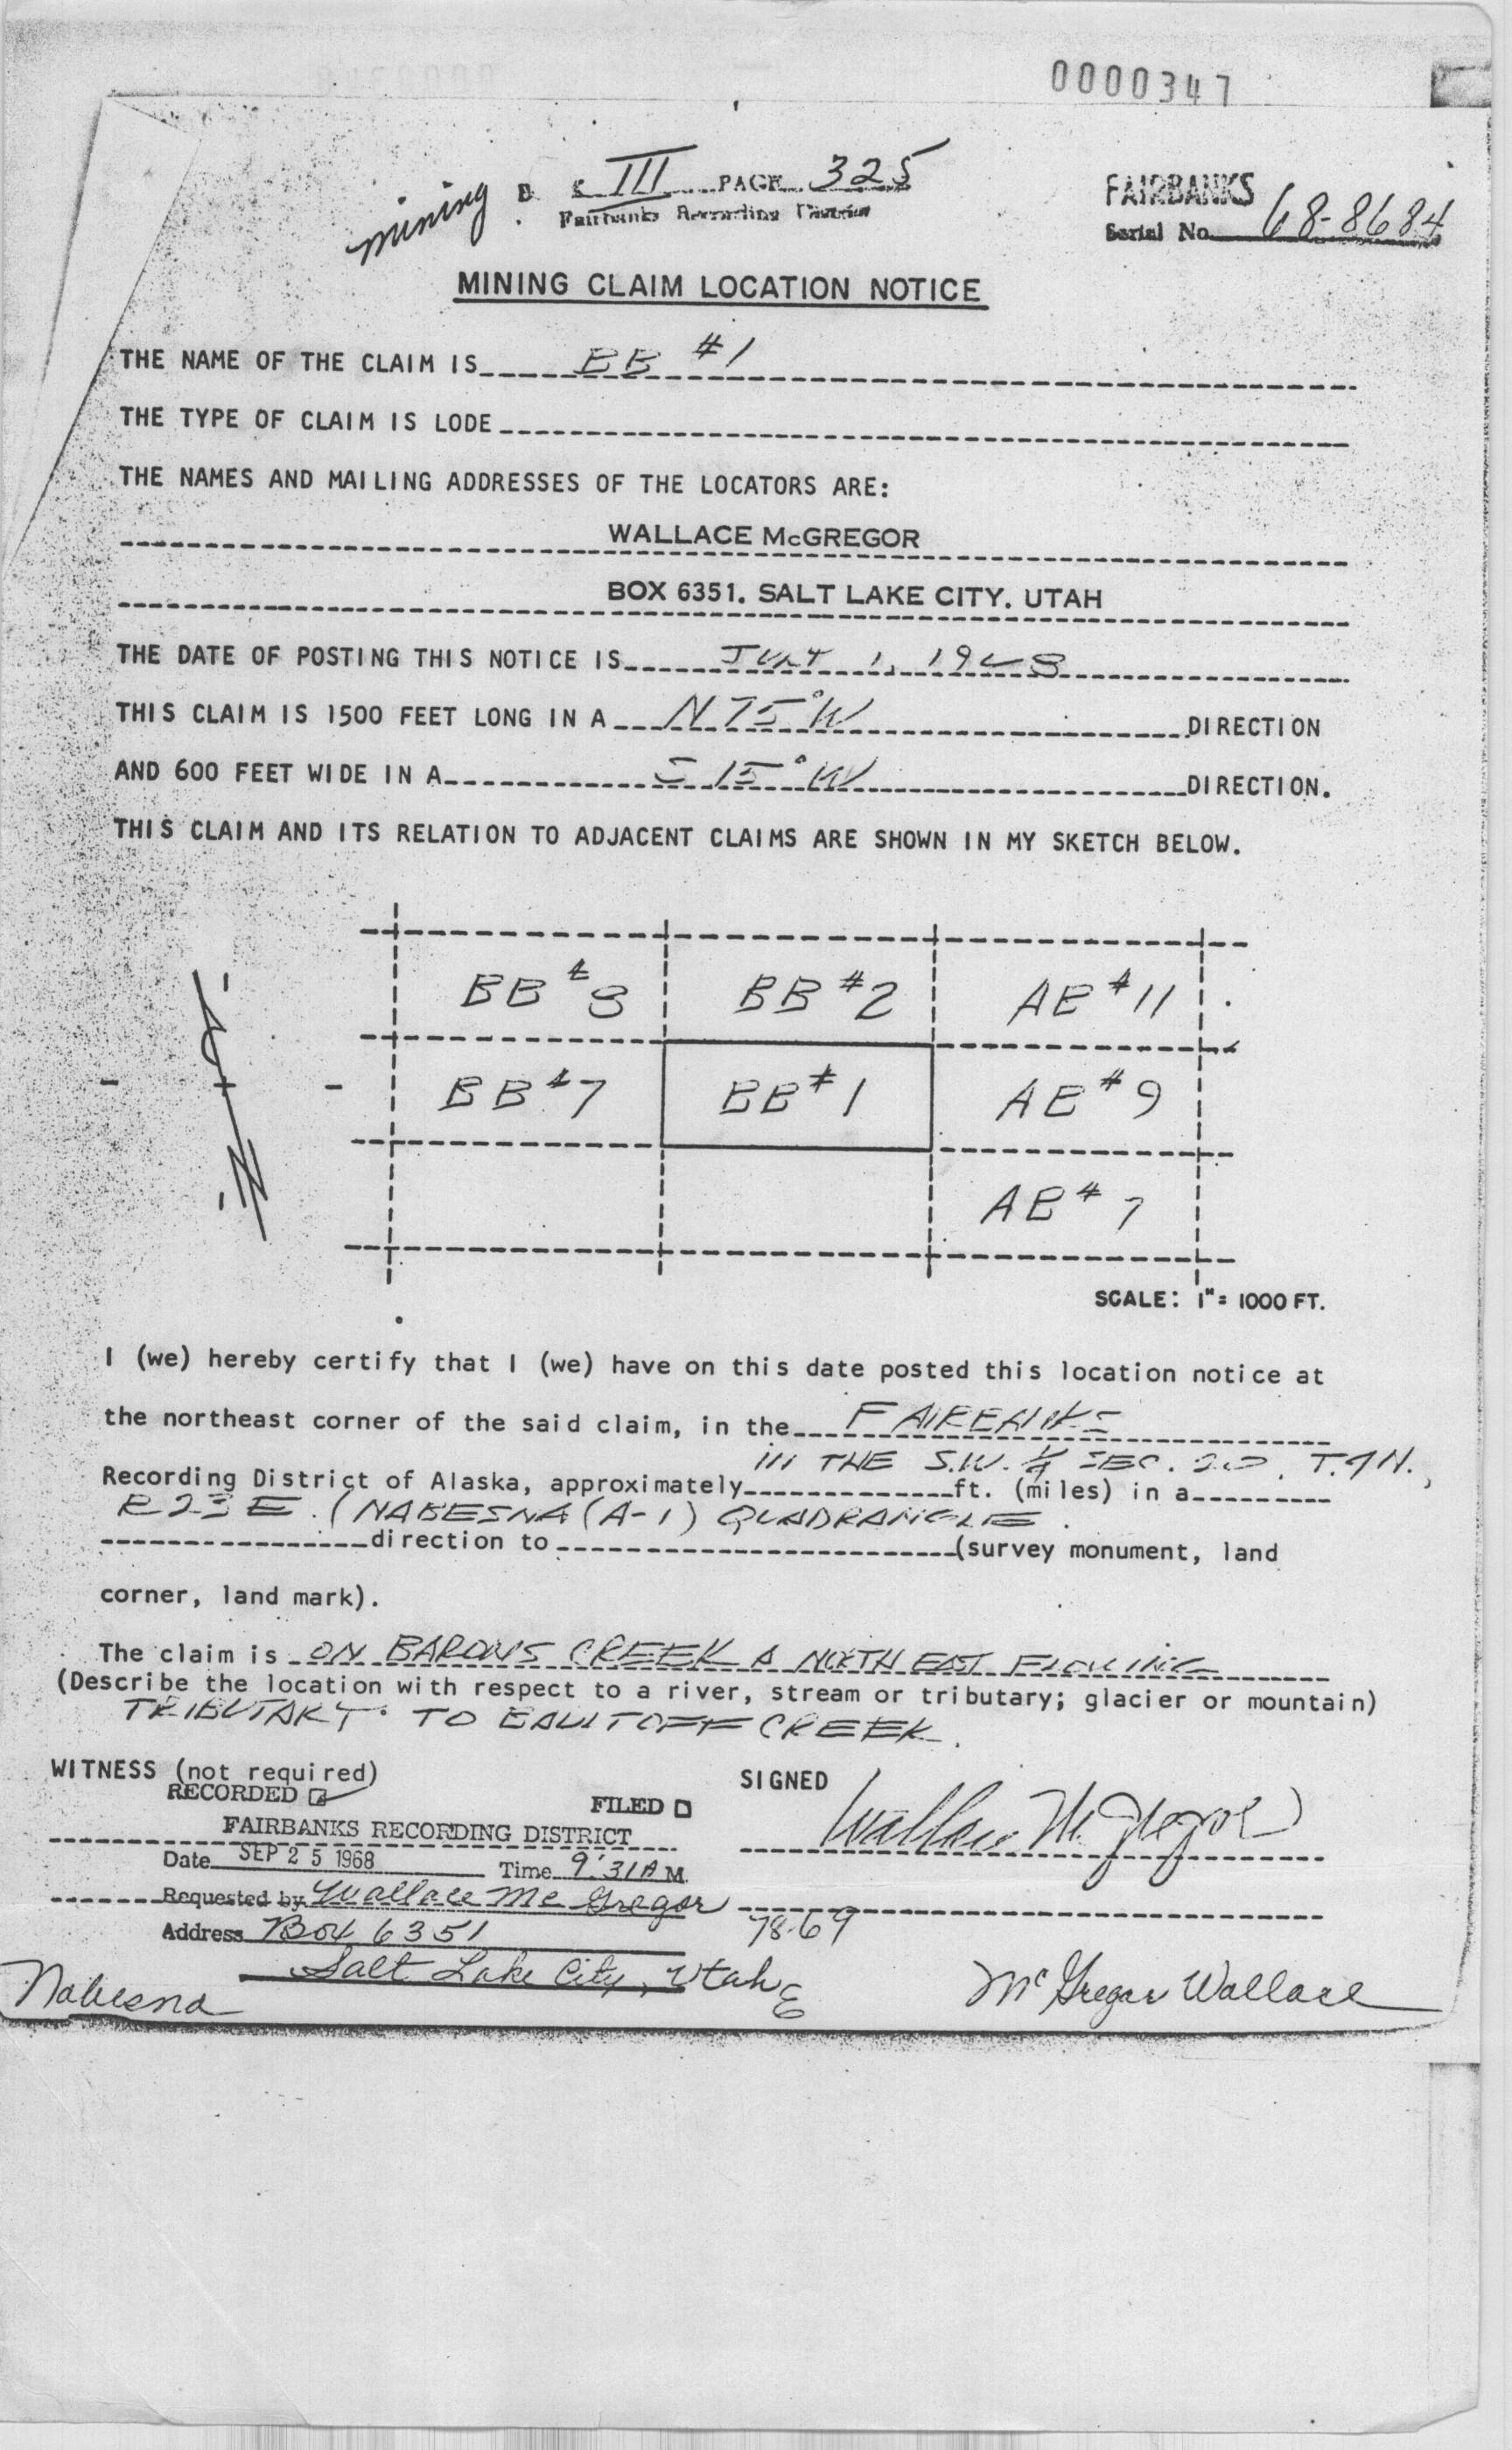 0000347
mining III PAGE 325
Fairbanks Recording District
FAIRBANKS
Serial No. 68-8684
MINING CLAIM LOCATION NOTICE
THE NAME OF THE CLAIM IS BB #1
THE TYPE OF CLAIM IS LODE
THE NAMES AND MAILING ADDRESSES OF THE LOCATORS ARE:
WALLACE McGREGOR
BOX 6351. SALT LAKE CITY. UTAH
THE DATE OF POSTING THIS NOTICE IS JULY 1, 1968
THIS CLAIM IS 1500 FEET LONG IN A N 75° W DIRECTION
AND 600 FEET WIDE IN A S 15° W DIRECTION.
THIS CLAIM AND ITS RELATION TO ADJACENT CLAIMS ARE SHOWN IN MY SKETCH BELOW.
BB #8 BB #2 AB #11
BB #7 BB #1 AB #9
AB #7
SCALE: 1" = 1000 FT.
I (we) hereby certify that I (we) have on this date posted this location notice at
the northeast corner of the said claim, in the FAIRBANKS
IN THE S.W. 1/4 SEC. 20, T.7N.,
Recording District of Alaska, approximately ft. (miles) in a
R23E. (NABESNA (A-1) QUADRANGLE.
direction to (survey monument, land
corner, land mark).
The claim is ON BARONS CREEK A NORTH EAST FLOWING
(Describe the location with respect to a river, stream or tributary; glacier or mountain)
TRIBUTARY TO BAULTOFF CREEK.
WITNESS (not required)
SIGNED
RECORDED
FILED
Wallace McGregor
FAIRBANKS RECORDING DISTRICT
Date SEP 25 1968 Time 9:31 A M.
Requested by Wallace McGregor
Address Box 6351
78-69
Salt Lake City, Utah
Nabesna
McGregor Wallace